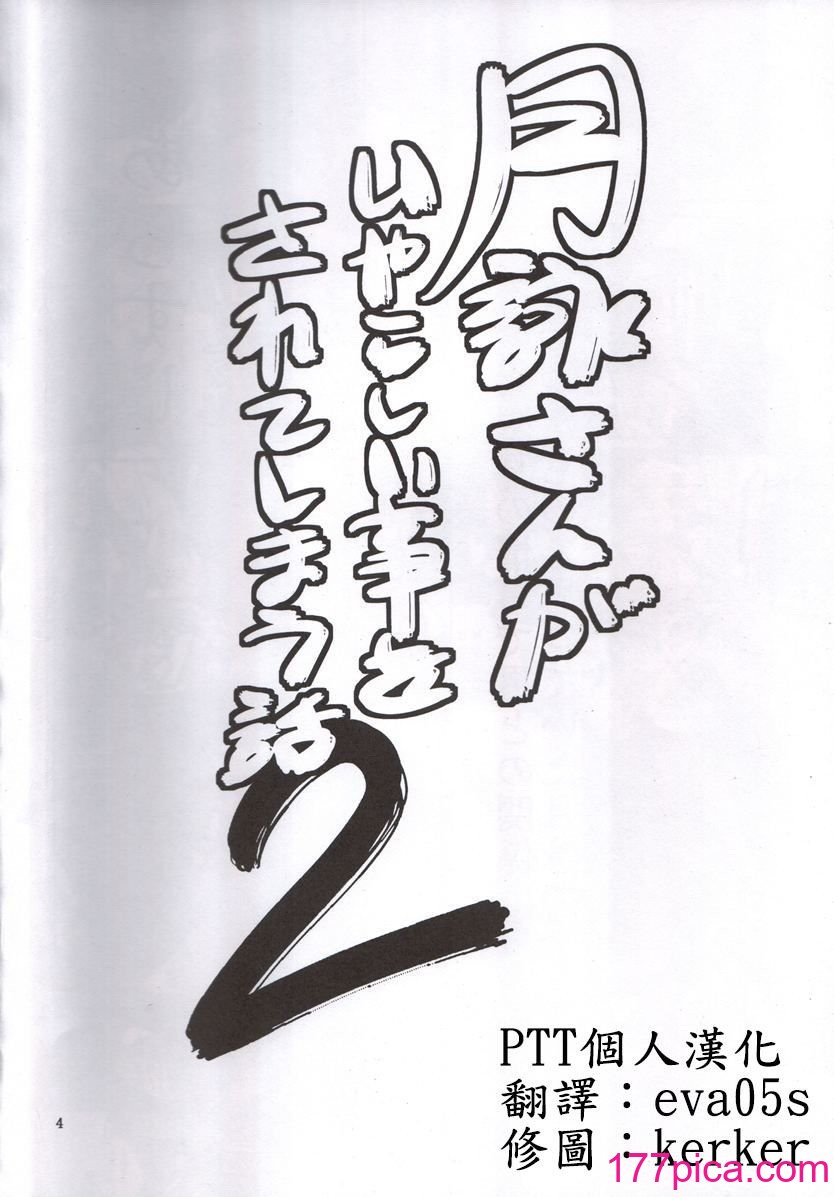 月詠さんが
いやらしい事を
されてしまう話
2
PTT個人漢化
翻譯：eva05s
修圖：kerker
177pica.com
4